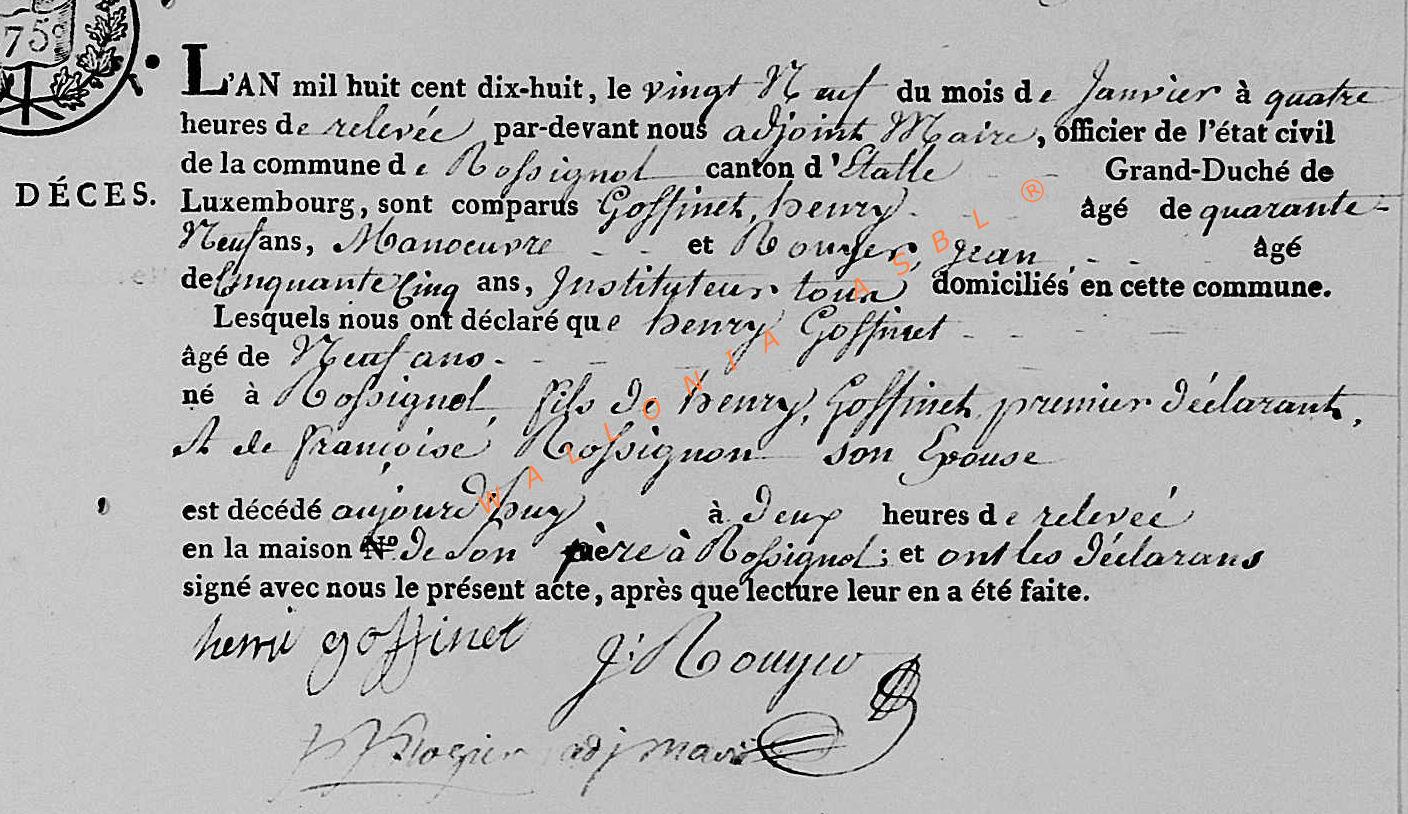 75c
L'AN mil huit cent dix-huit, le vingt Neuf du mois de Janvier à quatre
heures de relevée par-devant nous adjoint Maire, officier de l'état civil
de la commune de Rossignol canton d'Etalle Grand-Duché de
DÉCES.
Luxembourg, sont comparus Goffinet, henry âgé de quarante-
Neuf ans, Manoeuvre et Rouyer, Jean âgé
de Cinquante Cinq ans, Instituteur tous domiciliés en cette commune.
Lesquels nous ont déclaré que henry Goffinet
âgé de Neuf ans
né à Rossignol, fils de henry, Goffinet, premier déclarant,
et de françoise Rossignon son Epouse
est décédé aujourd'huy à deux heures de releveé
en la maison N.º de son père à Rossignol; et ont les déclarans
signé avec nous le présent acte, après que lecture leur en a été faite.
henri goffinet J: Rouyer
adj maire
WALLONIA ASBL ®